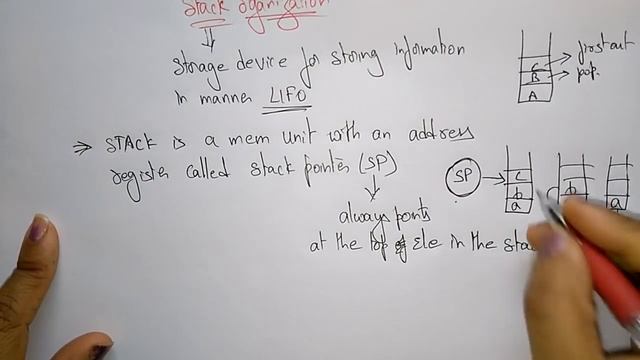 Stack organization
Storage device for storing information
in manner LIFO
⇒ STACK is a mem unit with an address
register called stack pointer (SP)
always points
at the top of Ele in the sta
C → first out
B → pop.
A
SP
C
b
a
b
a